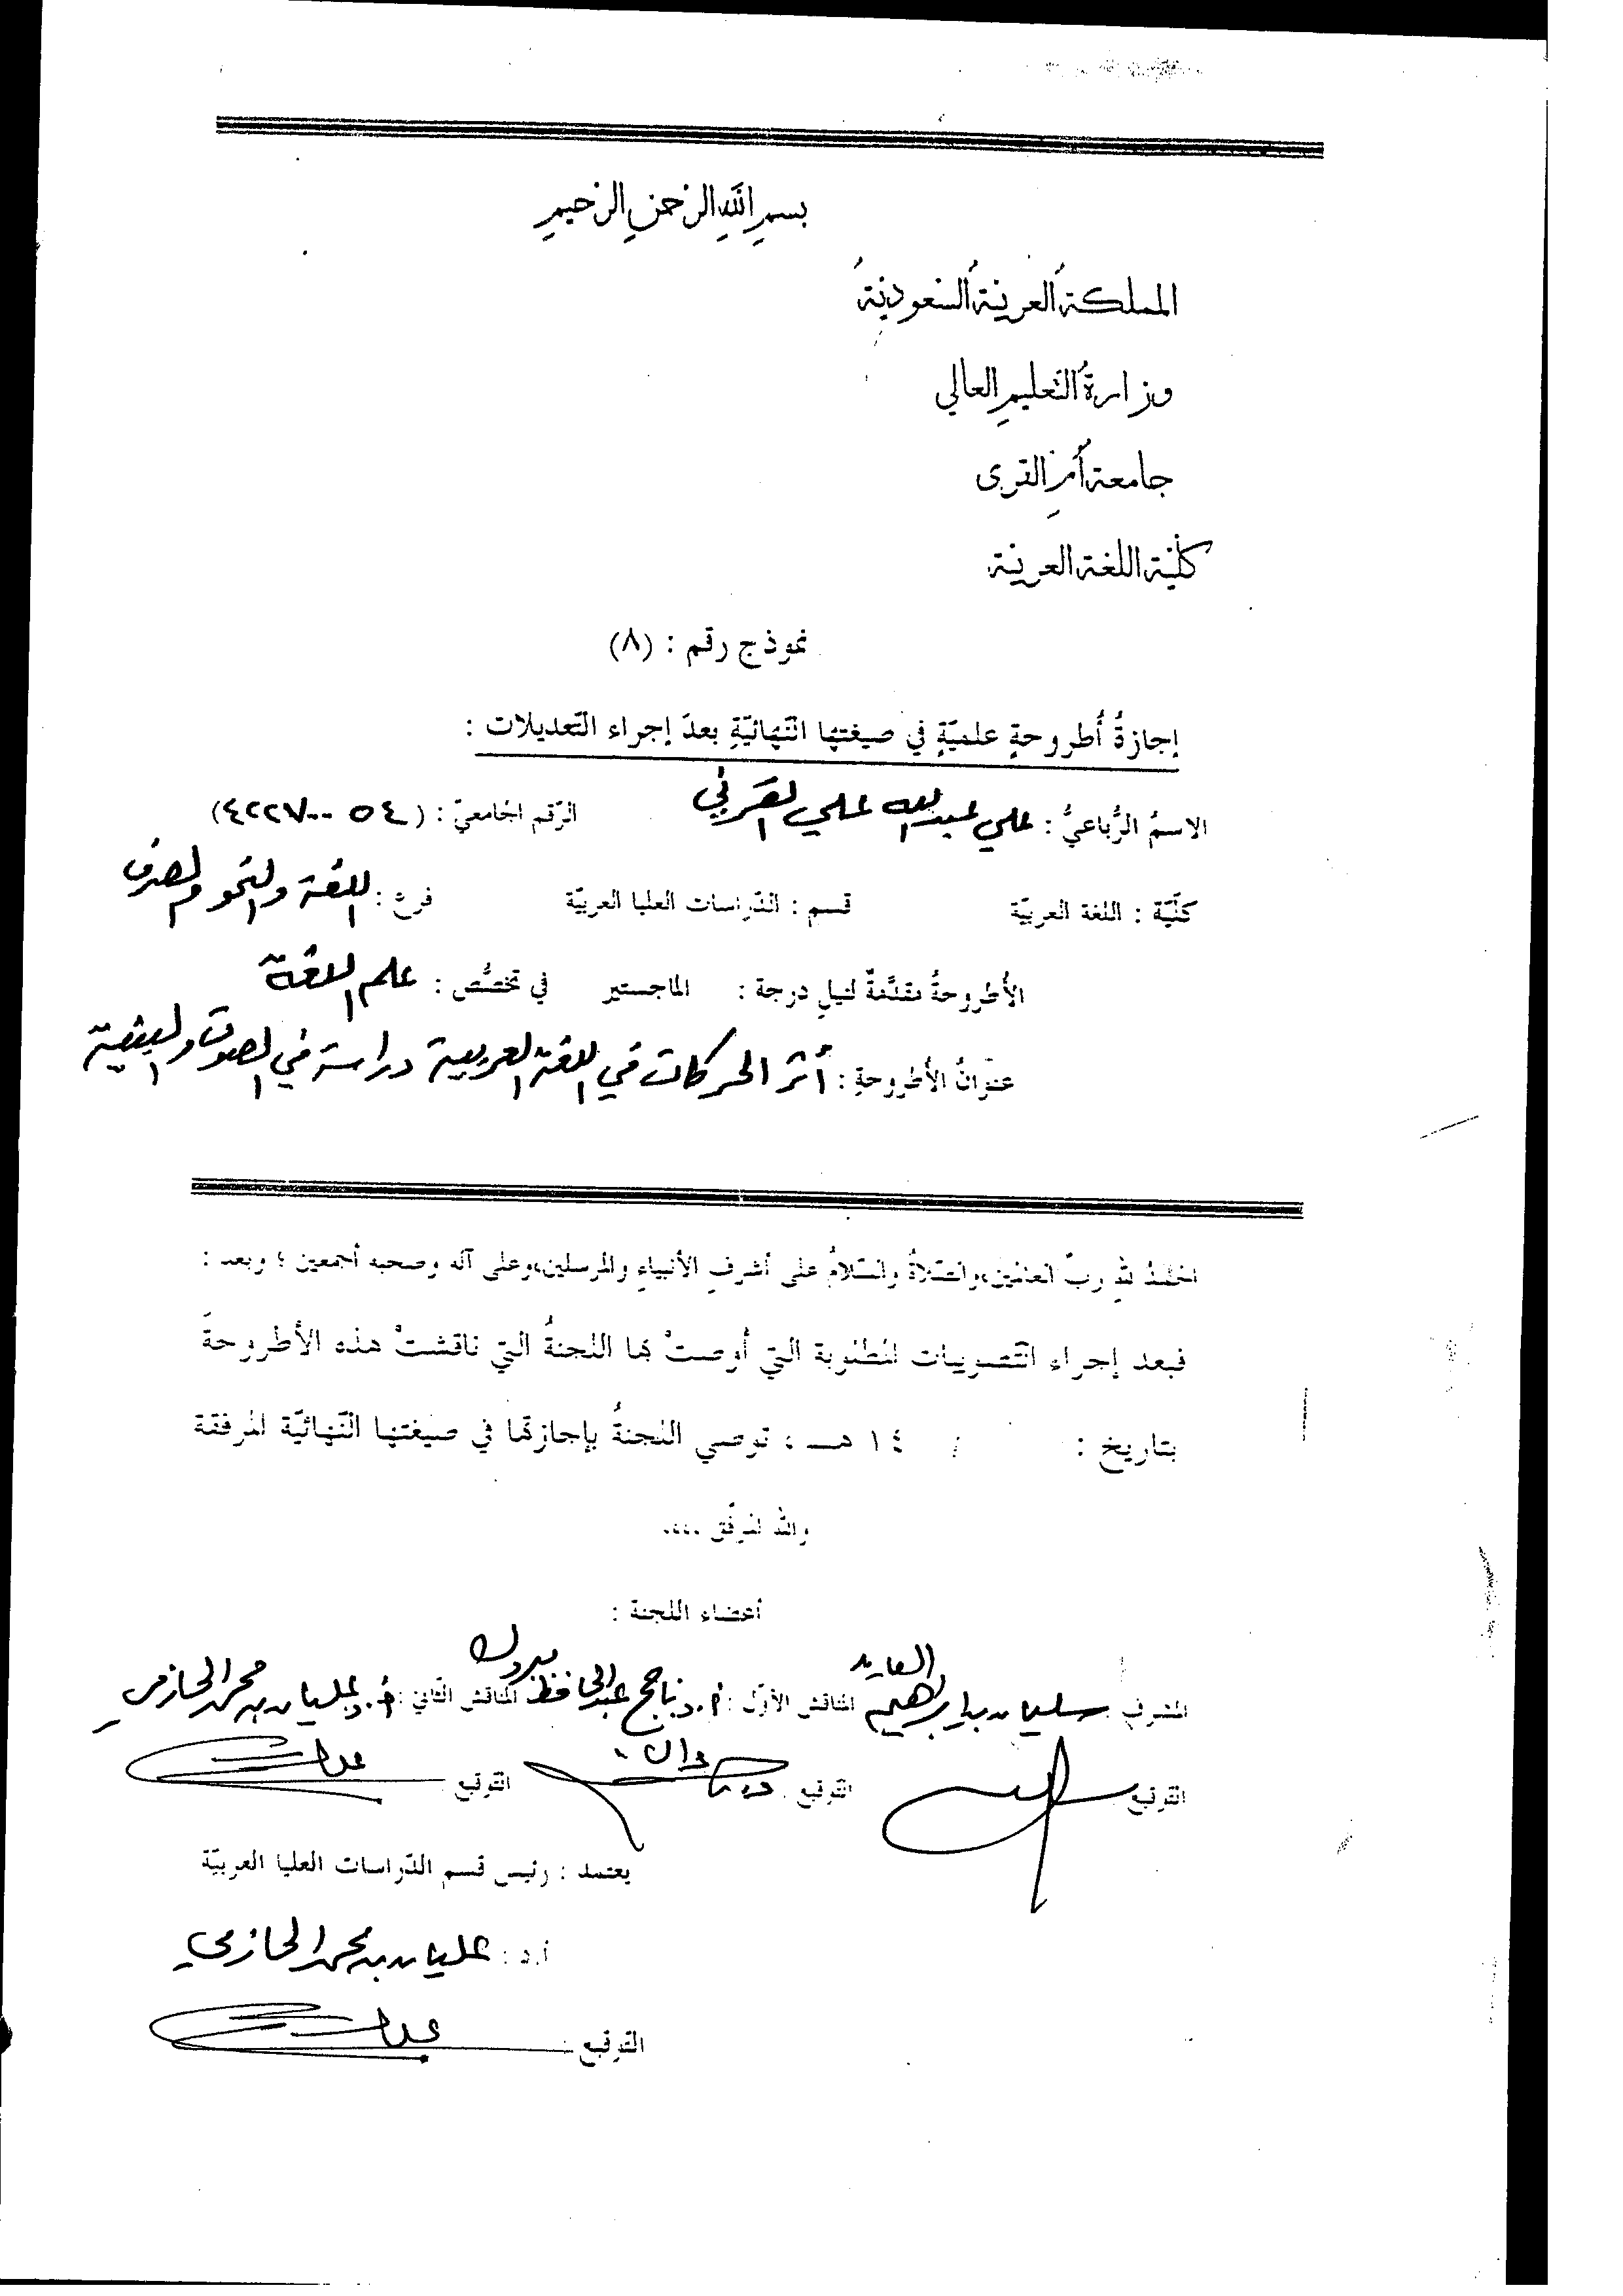 بسم الله الرحمن الرحيم
المملكة العربية السعودية
وزارة التعليم العالي
جامعة أم القرى
كلية اللغة العربية
نموذج رقم : (٨)
إجازةُ أُطروحةٍ علميّةٍ في صيغتها النّهائيّةِ بعدَ إجراء التّعديلات :
الاسمُ الرُّباعيُّ : علي عبدالله علي القرني الرّقم الجامعيّ : (٤٢٢٧٠٠٥٤)
كلّيّة : اللغة العربيّة قسم : الدّراسات العليا العربيّة فرع : اللغة والنحو والصرف
الأُطروحةُ مقدَّمةٌ لنيلِ درجة : الماجستير في تخصُّص : علم اللغة
عنوانُ الأُطروحةِ : أثر الحركات في اللغة العربية دراسة في الصوت والبنية
الحمدُ للهِ ربّ العالمين،والصّلاةُ والسّلامُ على أشرفِ الأنبياءِ والمرسلين،وعلى آله وصحبه أجمعين ؛ وبعد :
فبعد إجراء التّصويبات المطلوبة التي أوصتْ بها اللجنةُ التي ناقشتْ هذه الأطروحةَ
بتاريخ : / ١٤ هـ ، توصي اللجنةُ بإجازتها في صيغتها النّهائيّة المرفقة
والله الموفّق ....
أعضاء اللجنة :
المشرف : سليمان بن إبراهيم العايد المناقش الأوّل : أ.د ناجح عبدالحافظ مبروك المناقش الثاني : أ.د عليان بن محمد الحازمي
التوقيع التوقيع التوقيع
يعتمد : رئيس قسم الدّراسات العليا العربيّة
أ.د : عليان بن محمد الحازمي
التوقيع